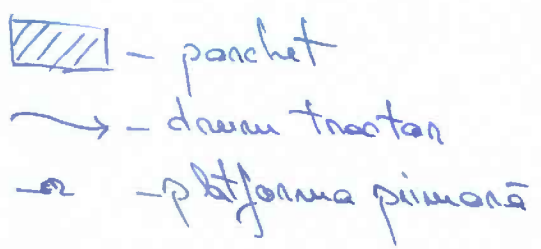 - parchet
- drum tractor
- platforma primară